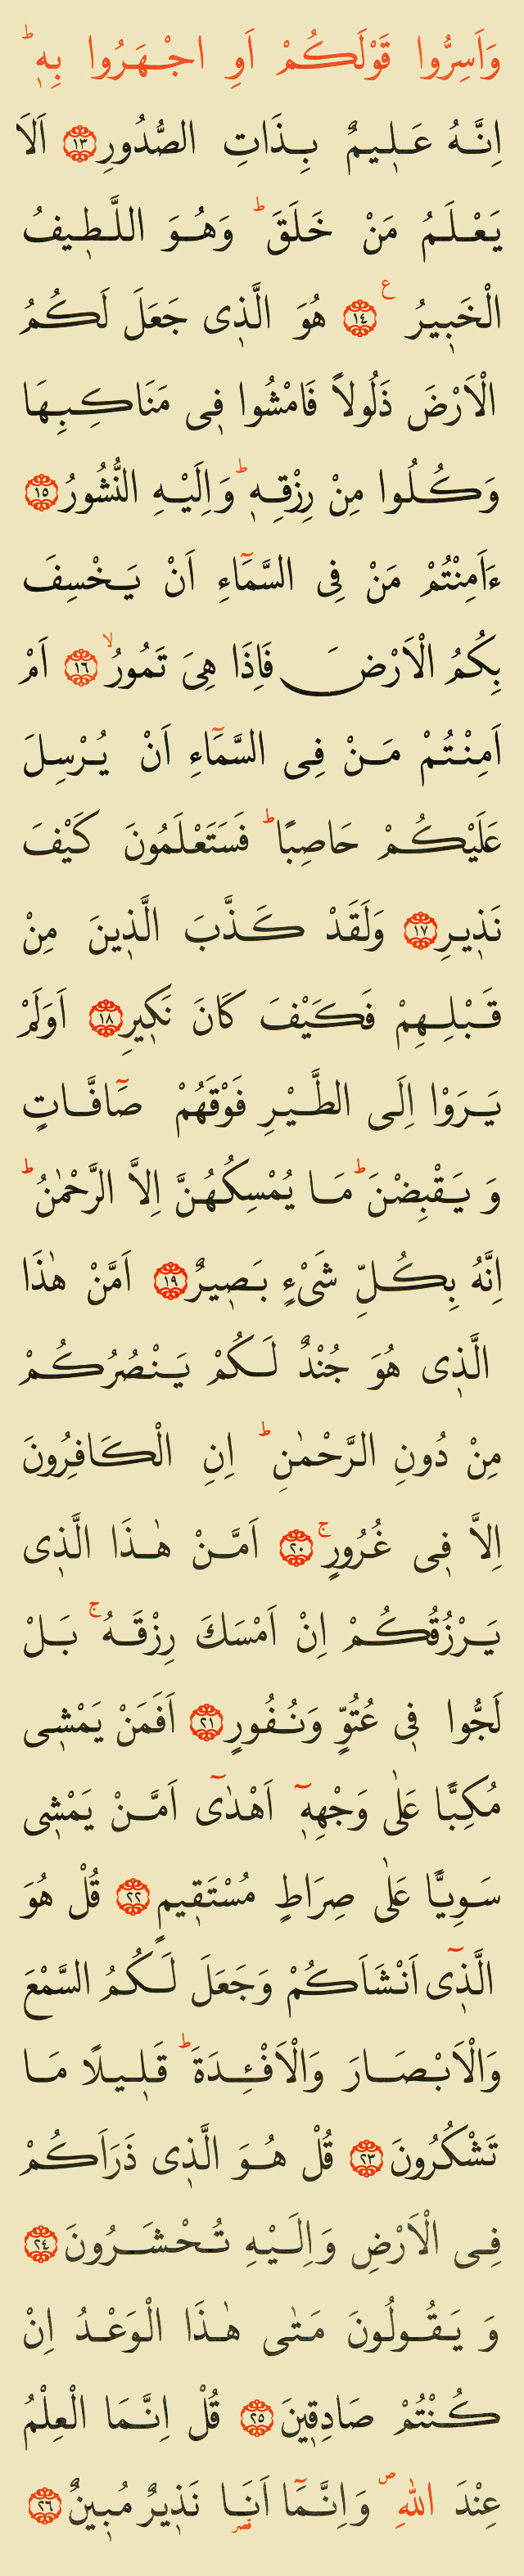 وَاَسِرُّوا قَوْلَكُمْ اَوِ اجْهَرُوا بِهٖ ؕ
اِنَّهُ عَلٖيمٌ بِذَاتِ الصُّدُورِ ﴿١٣﴾ اَلَا
يَعْلَمُ مَنْ خَلَقَ ؕ وَهُوَ اللَّطٖيفُ
الْخَبٖيرُ ع ﴿١٤﴾ هُوَ الَّذٖى جَعَلَ لَكُمُ
الْاَرْضَ ذَلُولاً فَامْشُوا فٖى مَنَاكِبِهَا
وَكُلُوا مِنْ رِزْقِهٖ ؕ وَاِلَيْهِ النُّشُورُ ﴿١٥﴾
ءَاَمِنْتُمْ مَنْ فِى السَّمَٓاءِ اَنْ يَخْسِفَ
بِكُمُ الْاَرْضَ فَاِذَا هِىَ تَمُورُ ۙ ﴿١٦﴾ اَمْ
اَمِنْتُمْ مَنْ فِى السَّمَٓاءِ اَنْ يُرْسِلَ
عَلَيْكُمْ حَاصِبًا ؕ فَسَتَعْلَمُونَ كَيْفَ
نَذٖيرِ ﴿١٧﴾ وَلَقَدْ كَذَّبَ الَّذٖينَ مِنْ
قَبْلِهِمْ فَكَيْفَ كَانَ نَكٖيرِ ﴿١٨﴾ اَوَلَمْ
يَرَوْا اِلَى الطَّيْرِ فَوْقَهُمْ صَٓافَّاتٍ
وَ يَقْبِضْنَ ؕ مَا يُمْسِكُهُنَّ اِلاَّ الرَّحْمٰنُ ؕ
اِنَّهُ بِكُلِّ شَىْءٍ بَصٖيرٌ ﴿١٩﴾ اَمَّنْ هٰذَا
الَّذٖى هُوَ جُنْدٌ لَكُمْ يَنْصُرُكُمْ
مِنْ دُونِ الرَّحْمٰنِ ؕ اِنِ الْكَافِرُونَ
اِلاَّ فٖى غُرُورٍ ۚ ﴿٢٠﴾ اَمَّنْ هٰذَا الَّذٖى
يَرْزُقُكُمْ اِنْ اَمْسَكَ رِزْقَهُ ۚ بَلْ
لَجُّوا فٖى عُتُوٍّ وَنُفُورٍ ﴿٢١﴾ اَفَمَنْ يَمْشٖى
مُكِبًّا عَلٰى وَجْهِهٖٓ اَهْدٰٓى اَمَّنْ يَمْشٖى
سَوِيًّا عَلٰى صِرَاطٍ مُسْتَقٖيمٍ ﴿٢٢﴾ قُلْ هُوَ
الَّذٖٓى اَنْشَاَكُمْ وَجَعَلَ لَكُمُ السَّمْعَ
وَالْاَبْصَارَ وَالْاَفْـِٔدَةَ ؕ قَلٖيلًا مَا
تَشْكُرُونَ ﴿٢٣﴾ قُلْ هُوَ الَّذٖى ذَرَاَكُمْ
فِى الْاَرْضِ وَاِلَيْهِ تُحْشَرُونَ ﴿٢٤﴾
وَ يَقُولُونَ مَتٰى هٰذَا الْوَعْدُ اِنْ
كُنْتُمْ صَادِقٖينَ ﴿٢٥﴾ قُلْ اِنَّمَا الْعِلْمُ
عِنْدَ اللّٰهِ ص وَاِنَّمَٓا اَنَا قصر نَذٖيرٌ مُبٖينٌ ﴿٢٦﴾